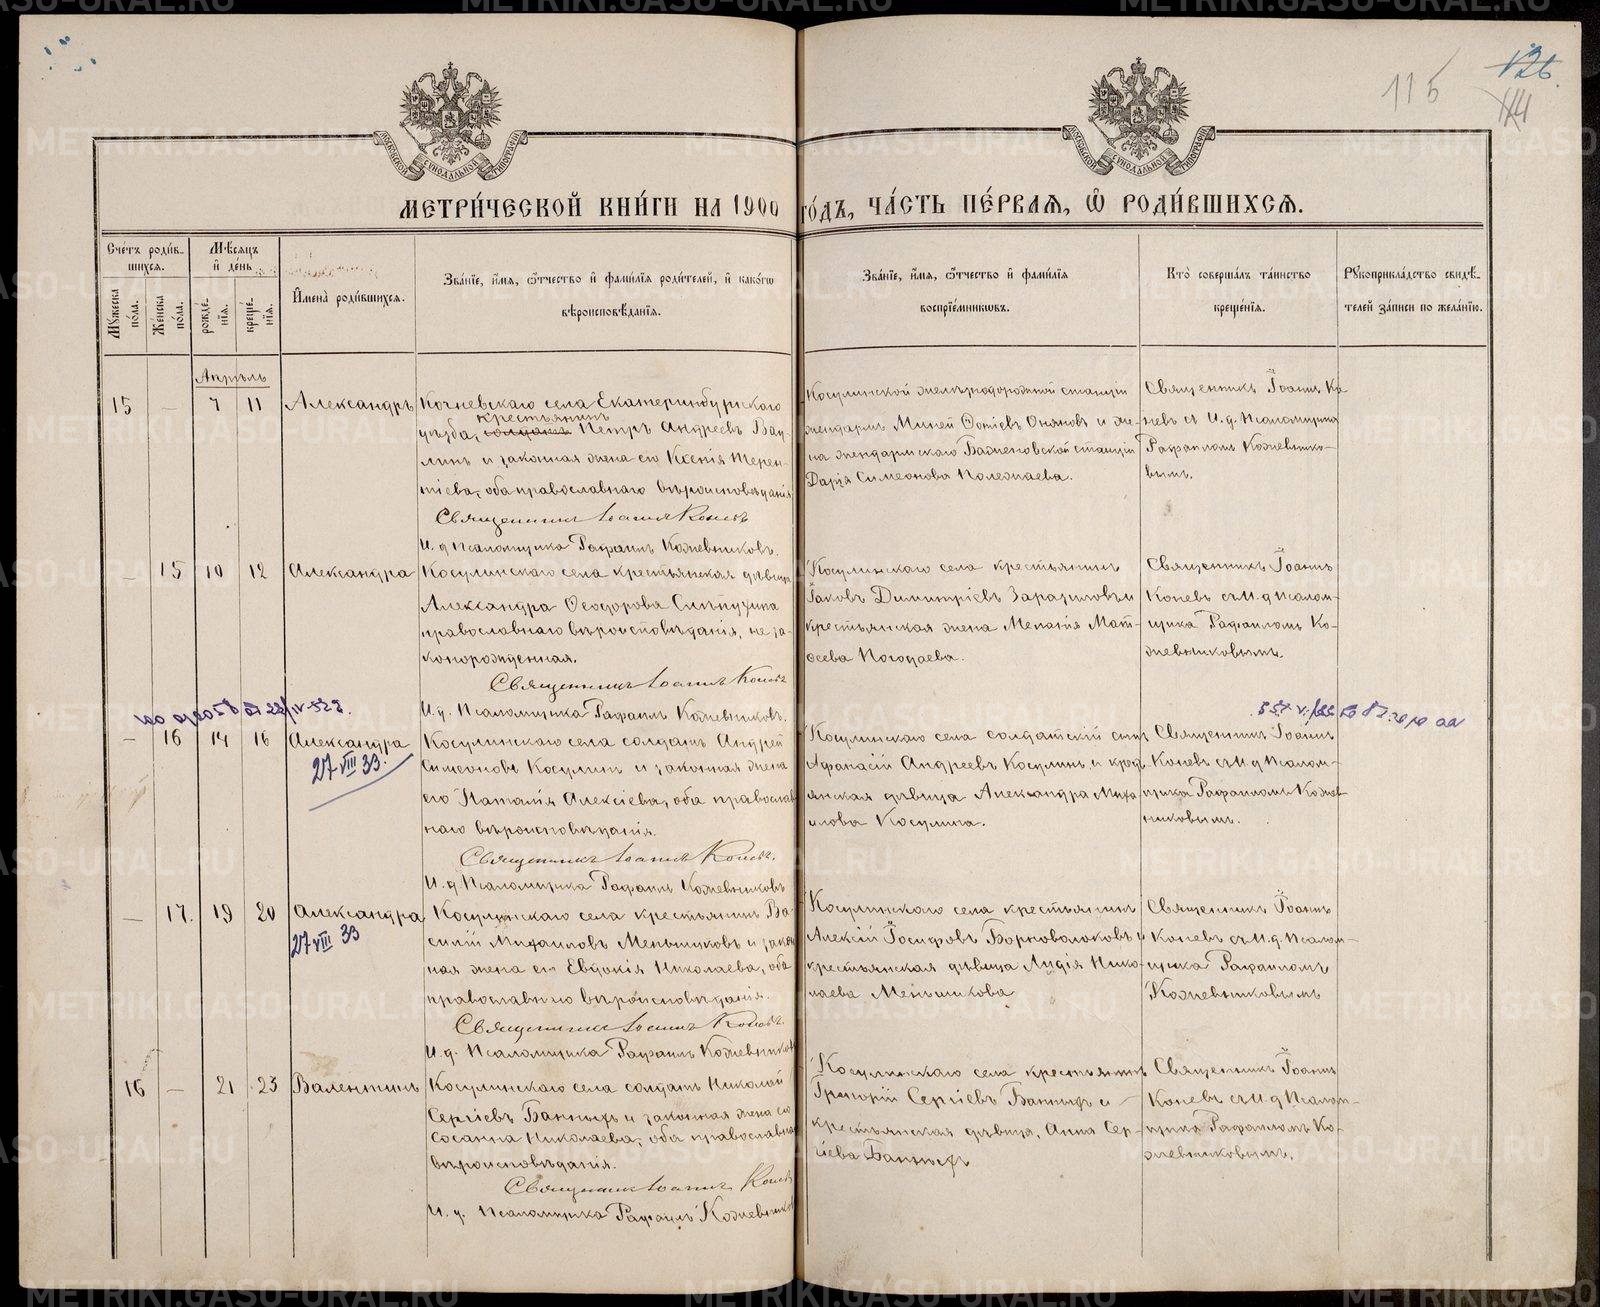 126
115
114
МОСКОВСКОЙ СѴНОДАЛЬНОЙ ТИПОГРАФІИ
МОСКОВСКОЙ СѴНОДАЛЬНОЙ ТИПОГРАФІИ
МЕТРИ́ЧЕСКОЙ КНИ́ГИ НА 1900 ГО́ДЪ, ЧА́СТЬ ПЕ́РВАѦ, Ѡ РОДИ́ВШИХСѦ.
Сче́тъ роди́в-
шихсѧ.
Мѣ́сѧцъ
и҆ де́нь
Мꙋ́жеска
по́ла.
Же́нска
по́ла.
рожде́-
нїѧ.
креще́-
нїѧ.
И҆мена̀ роди́вшихсѧ.
Зва́нїе, и҆́мѧ, ѻ҆́тчество и҆ фами́лїѧ роди́телей, и҆ како́гѡ
вѣроисповѣ́данїѧ.
Зва́нїе, и҆́мѧ, ѻ҆́тчество и҆ фами́лїѧ
воспрїе́мникѡвъ.
Кто̀ соверша́лъ та́инство
креще́нїѧ.
Рꙋкоприкла́дство свидѣ́-
телей за́писи по жела́нїю.
Апрѣль
15 — 7 11 Александръ
Кочневскаго села Екатеринбургскаго
крестьянинъ
уѣзда, солдатъ Петръ Андреевъ Вау-
линъ и законная жена его Ксенія Терен-
тіева, оба православнаго вѣроисповѣданія
Священникъ Іоаннъ Коневъ
И. д. Псаломщика Рафаилъ Кожевниковъ.
Косулинской желѣзнодорожной станціи
жандармъ Миней Фотіевъ Оняновъ и же-
на жандармскаго Баженовской станціи
Дарія Симеонова Полежаева.
Священникъ Іоаннъ Ко-
невъ съ И. д. Псаломщика
Рафаиломъ Кожевнико-
вымъ.
— 15 10 12 Александра
Косулинскаго села крестьянская дѣвица
Александра Ѳеодорова
православнаго вѣроисповѣданія, неза-
конорожденная.
Священникъ Іоаннъ Коневъ
И. д. Псаломщика Рафаилъ Кожевниковъ.
Косулинскаго села крестьянинъ
Іаковъ Димитріевъ и
крестьянская жена Меланія Мат-
ѳеева Погодаева.
Священникъ Іоаннъ
Коневъ съ И. д. Псалом-
щика Рафаиломъ Ко-
жевниковымъ.
— 16 14 16 Александра
27 VIII 39.
Косулинскаго села солдатъ Андрей
Симеоновъ Косулинъ и законная жена
его Наталія Алексіева, оба православ-
наго вѣроисповѣданія.
Священникъ Іоаннъ Коневъ.
И. д. Псаломщика Рафаилъ Кожевниковъ
Косулинскаго села солдатскій сынъ
Афанасій Андреевъ Косулинъ и крестъ-
янская дѣвица Александра Миха-
илова Косулина.
Священникъ Іоаннъ
Коневъ съ И. д. Псалом-
щика Рафаиломъ Кожев-
никовымъ.
— 17. 19 20 Александра
27 VIII 39
Косулинскаго села крестьянинъ Ва-
силій Михаиловъ Меньшиковъ и закон-
ная жена его Евдокія Николаева, оба
православнаго вѣроисповѣданія.
Священникъ Іоаннъ Коневъ.
И. д. Псаломщика Рафаилъ Кожевниковъ
Косулинскаго села крестьянинъ
Алексій Іосифовъ Борноволоковъ и
крестьянская дѣвица Лидія Нико-
лаева Меньшикова
Священникъ Іоаннъ
Коневъ съ И. д. Псалом-
щика Рафаиломъ
Кожевниковымъ
16 — 21 23 Валентинъ
Косулинскаго села солдатъ Николай
Сергіевъ Банныхъ и законная жена его
Сосанна Николаева, оба православнаго
вѣроисповѣданія.
Священникъ Іоаннъ Коневъ
И. д. Псаломщика Рафаилъ Кожевниковъ
Косулинскаго села крестьянинъ
Григорій Сергіевъ Банныхъ и
крестьянская дѣвица, Анна Сер-
гіева Банныхъ
Священникъ Іоаннъ
Коневъ съ И. д. Псалом-
щика Рафаиломъ Ко-
жевниковымъ.
METRIKI.GASO-URAL.RU